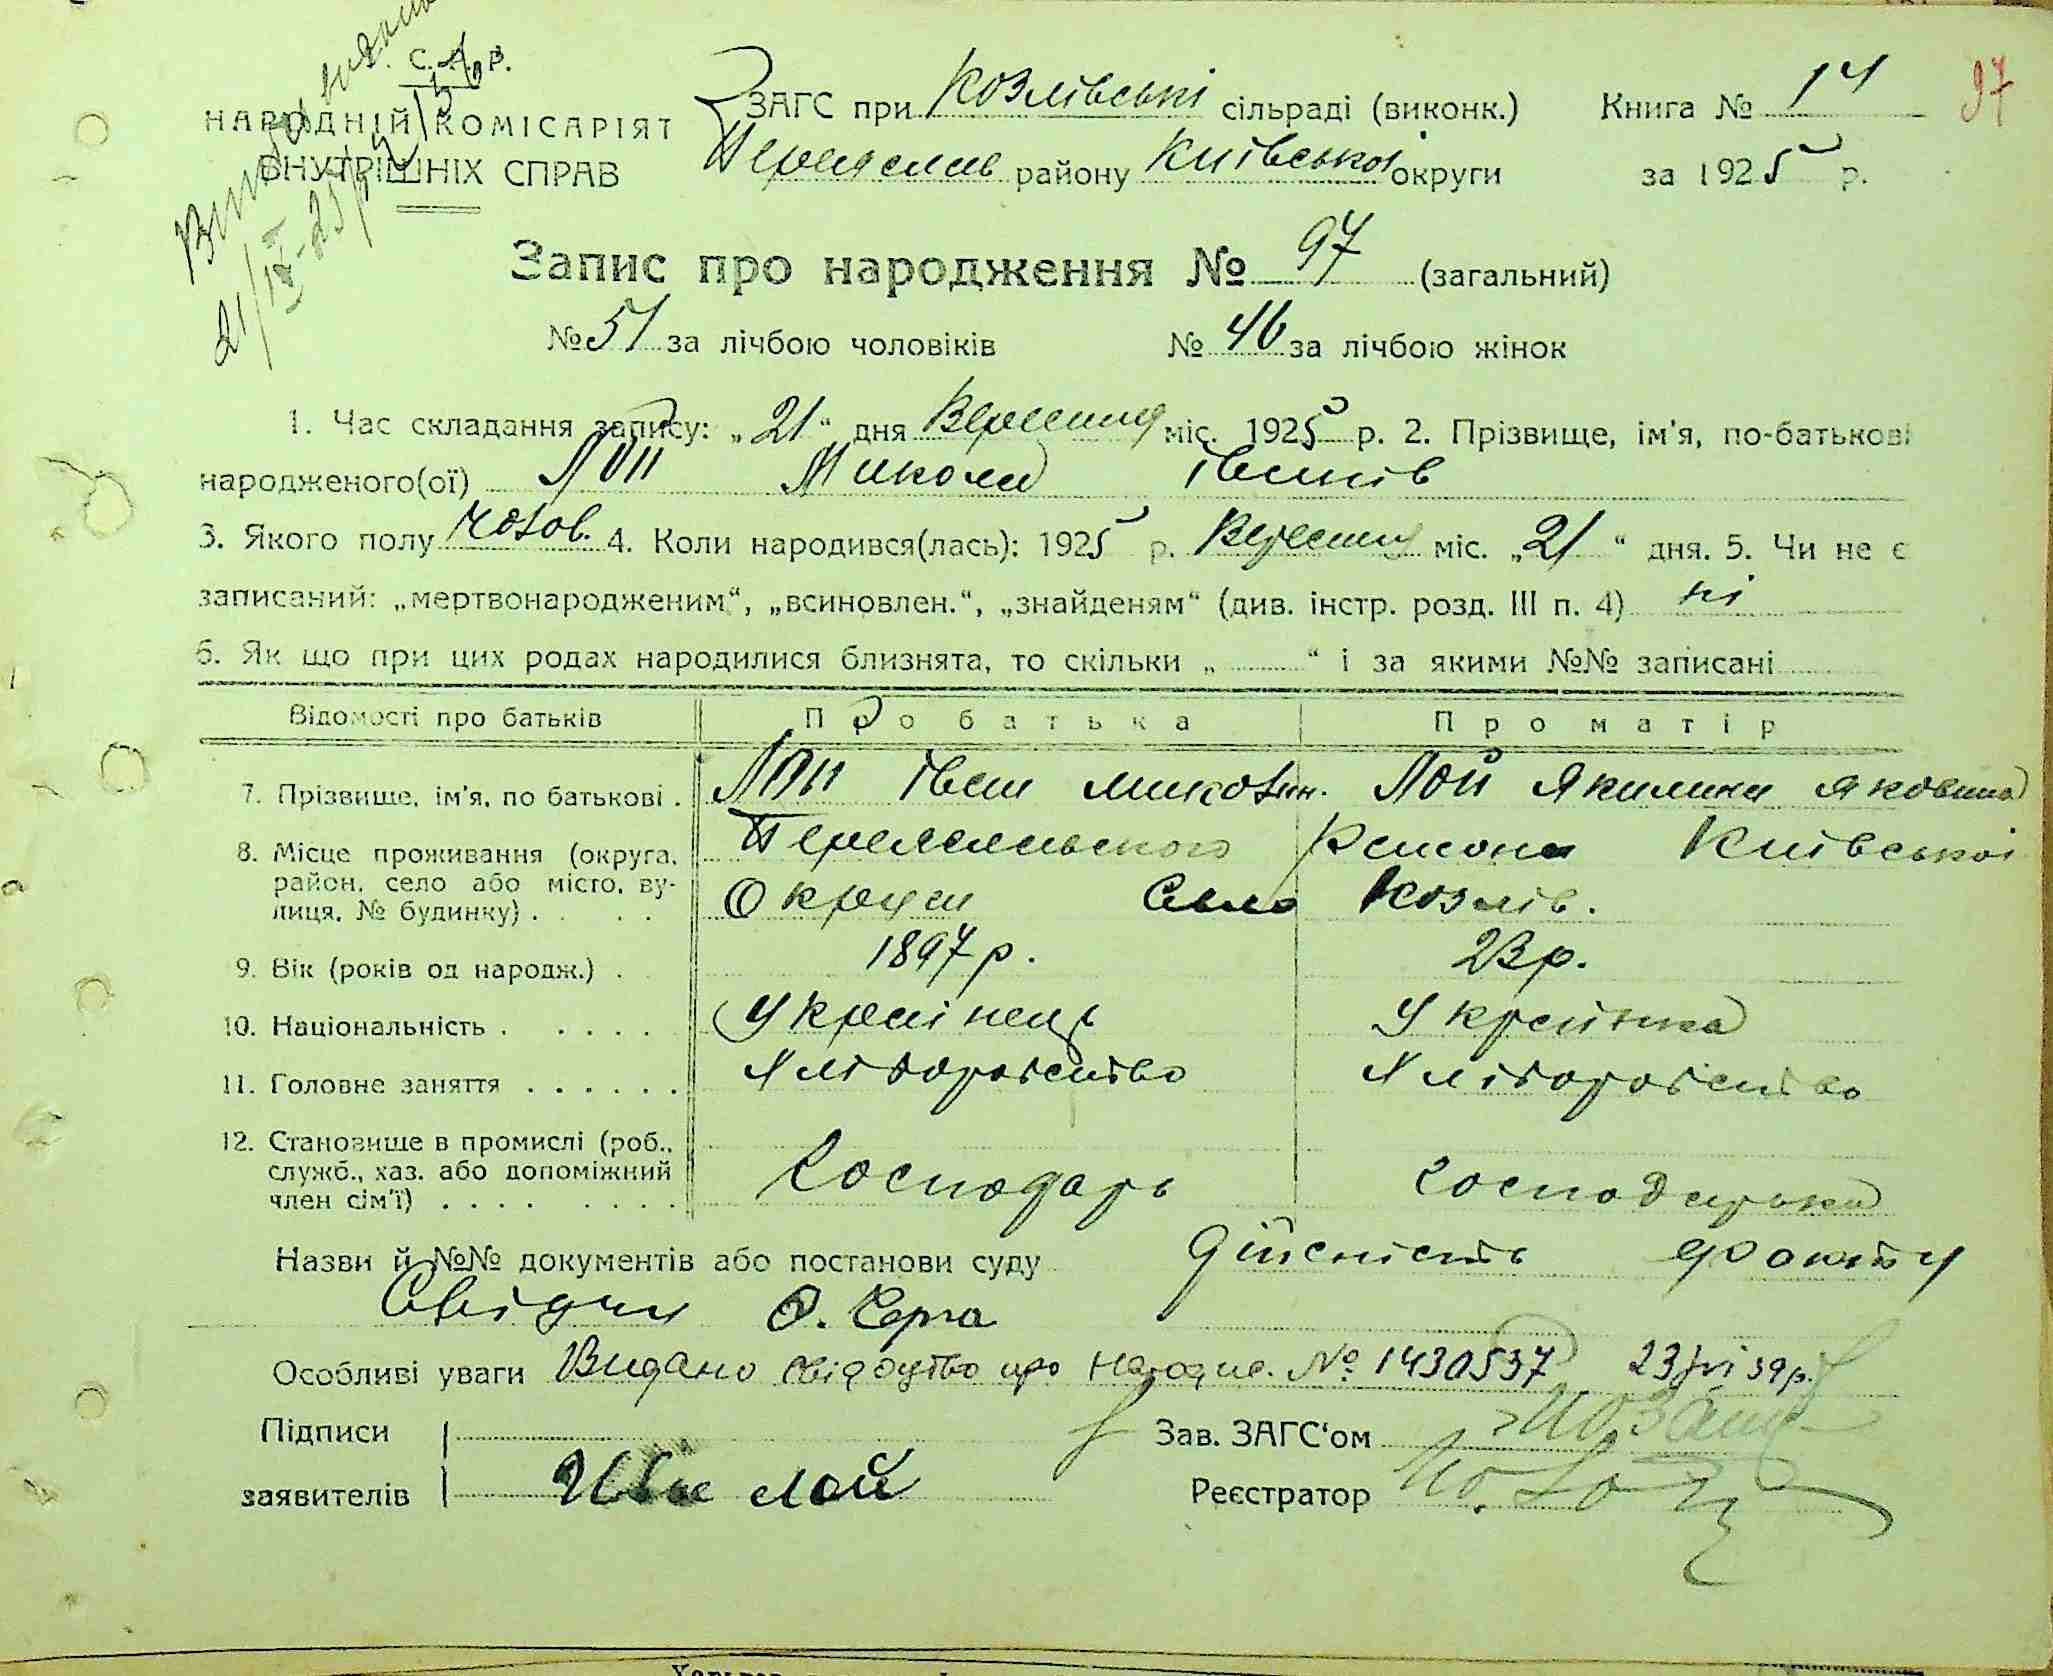 С. Р. Р.
НАРОДНІЙ КОМІСАРІЯТ
ВНУТРІШНІХ СПРАВ
21/IX-25р
ЗАГС при Козлівські сільраді (виконк.) Книга № 14 97
Переяслав району Київської округи за 1925 р.
Запис про народження № 97 (загальний)
№ 51 за лічбою чоловіків № 46 за лічбою жінок
1. Час складання запису: „21“ дня Вересня міс. 1925 р. 2. Прізвище, ім'я, по-батькові
народженого(ої) Лой Микола Іванів
3. Якого полу чолов. 4. Коли народився(лась): 1925 р. Вересня міс. „21“ дня. 5. Чи не є
записаний: „мертвонародженим“, „всиновлен.“, „знайденям“ (див. інстр. розд. III п. 4) ні
6. Як що при цих родах народилися близнята, то скільки „ “ і за якими №№ записані
Відомості про батьків Про батька Про матір
7. Прізвище, ім'я, по батькові . Лой Іван Миколин. Лой Якилина Яковина
8. Місце проживання (округа, Переяславського Району Київської
район, село або місто, ву-
лиця, № будинку) . . . Округи Село Козлів.
9. Вік (років од народж.) . 1897 р. 23 р.
10. Національність . . . . . Українець Українка
11. Головне заняття . . . . . . Хліборобство Хліборобство
12. Становище в промислі (роб.,
служб., хаз. або допоміжний Господарь Господарька
член сім'ї) . . . . . . . .
Назви й №№ документів або постанови суду Дійсність факту
Свідчу
Особливі уваги Видано свідоцтво про народже. № 1430537 23/VI 39р.
Підписи Зав. ЗАГС'ом
заявителів Иван Лой Реєстратор